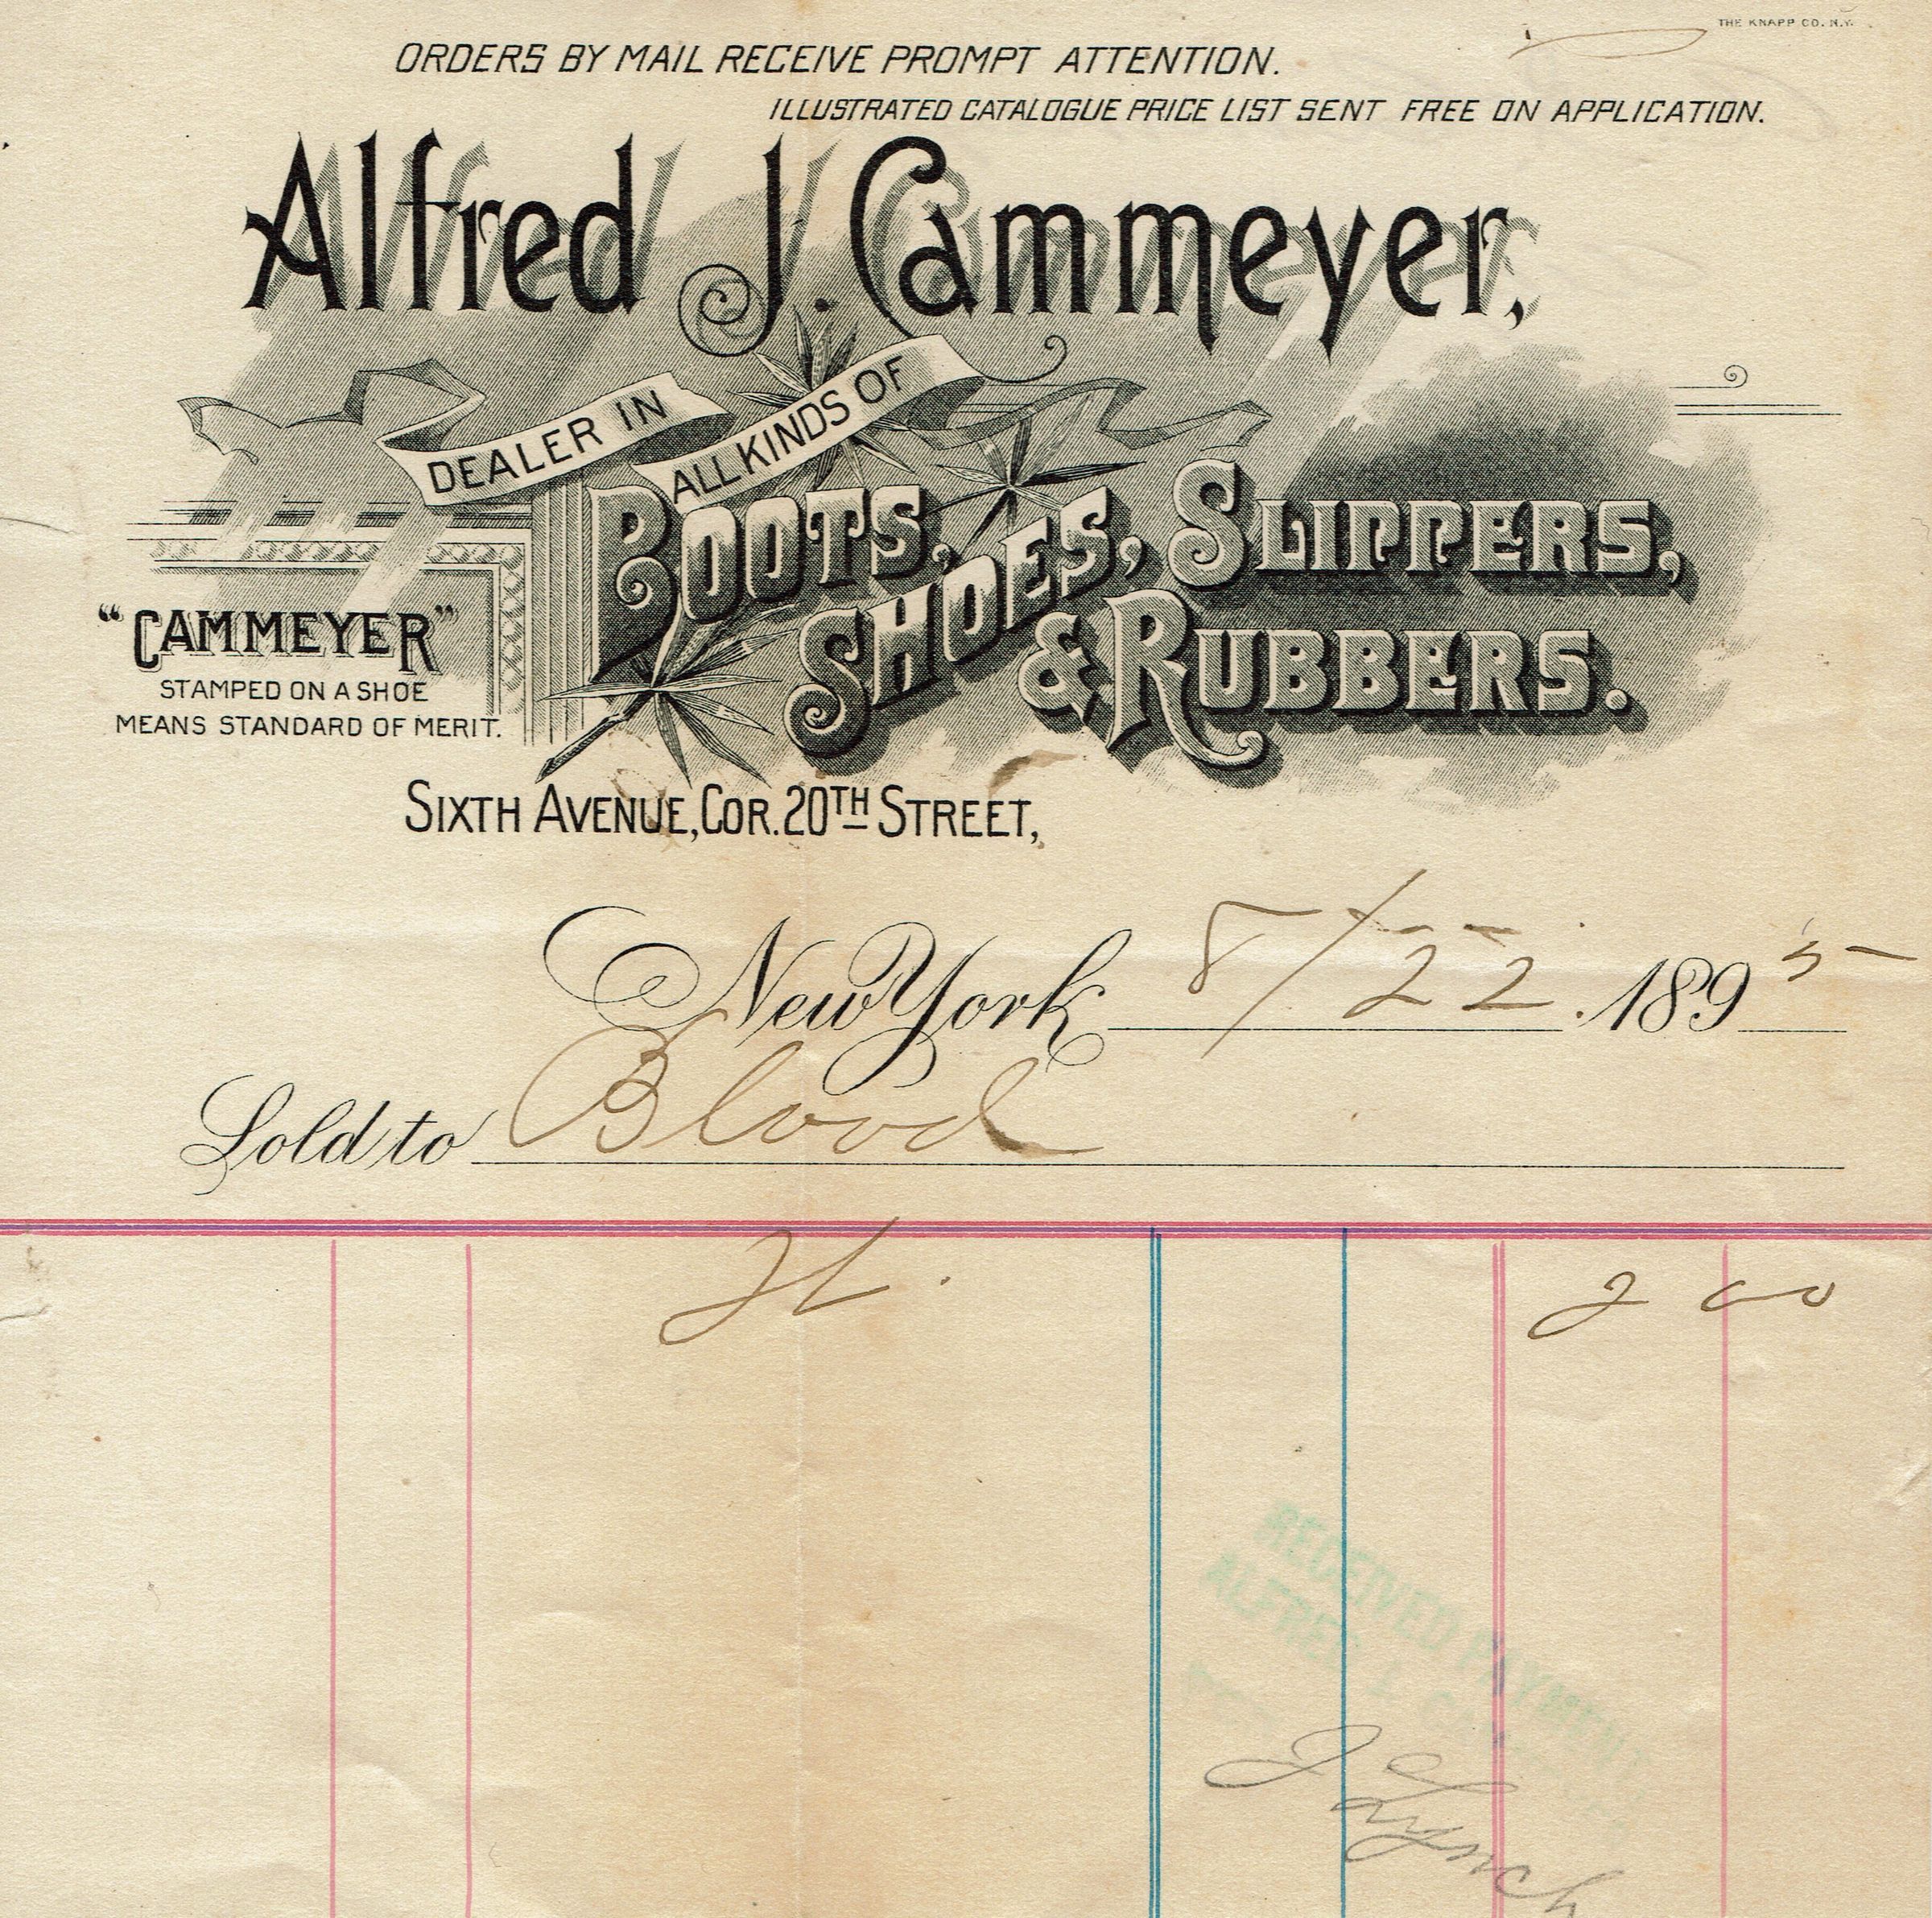 THE KNAPP CO. N.Y.
ORDERS BY MAIL RECEIVE PROMPT ATTENTION.
ILLUSTRATED CATALOGUE PRICE LIST SENT FREE ON APPLICATION.
Alfred J. Cammeyer,
DEALER IN
ALL KINDS OF
BOOTS, SHOES, SLIPPERS,
& RUBBERS.
"CAMMEYER"
STAMPED ON A SHOE
MEANS STANDARD OF MERIT.
SIXTH AVENUE, COR. 20TH STREET,
New York 8/22 1895
Sold to Blood
2 00
RECEIVED PAYMENT
ALFRED J.